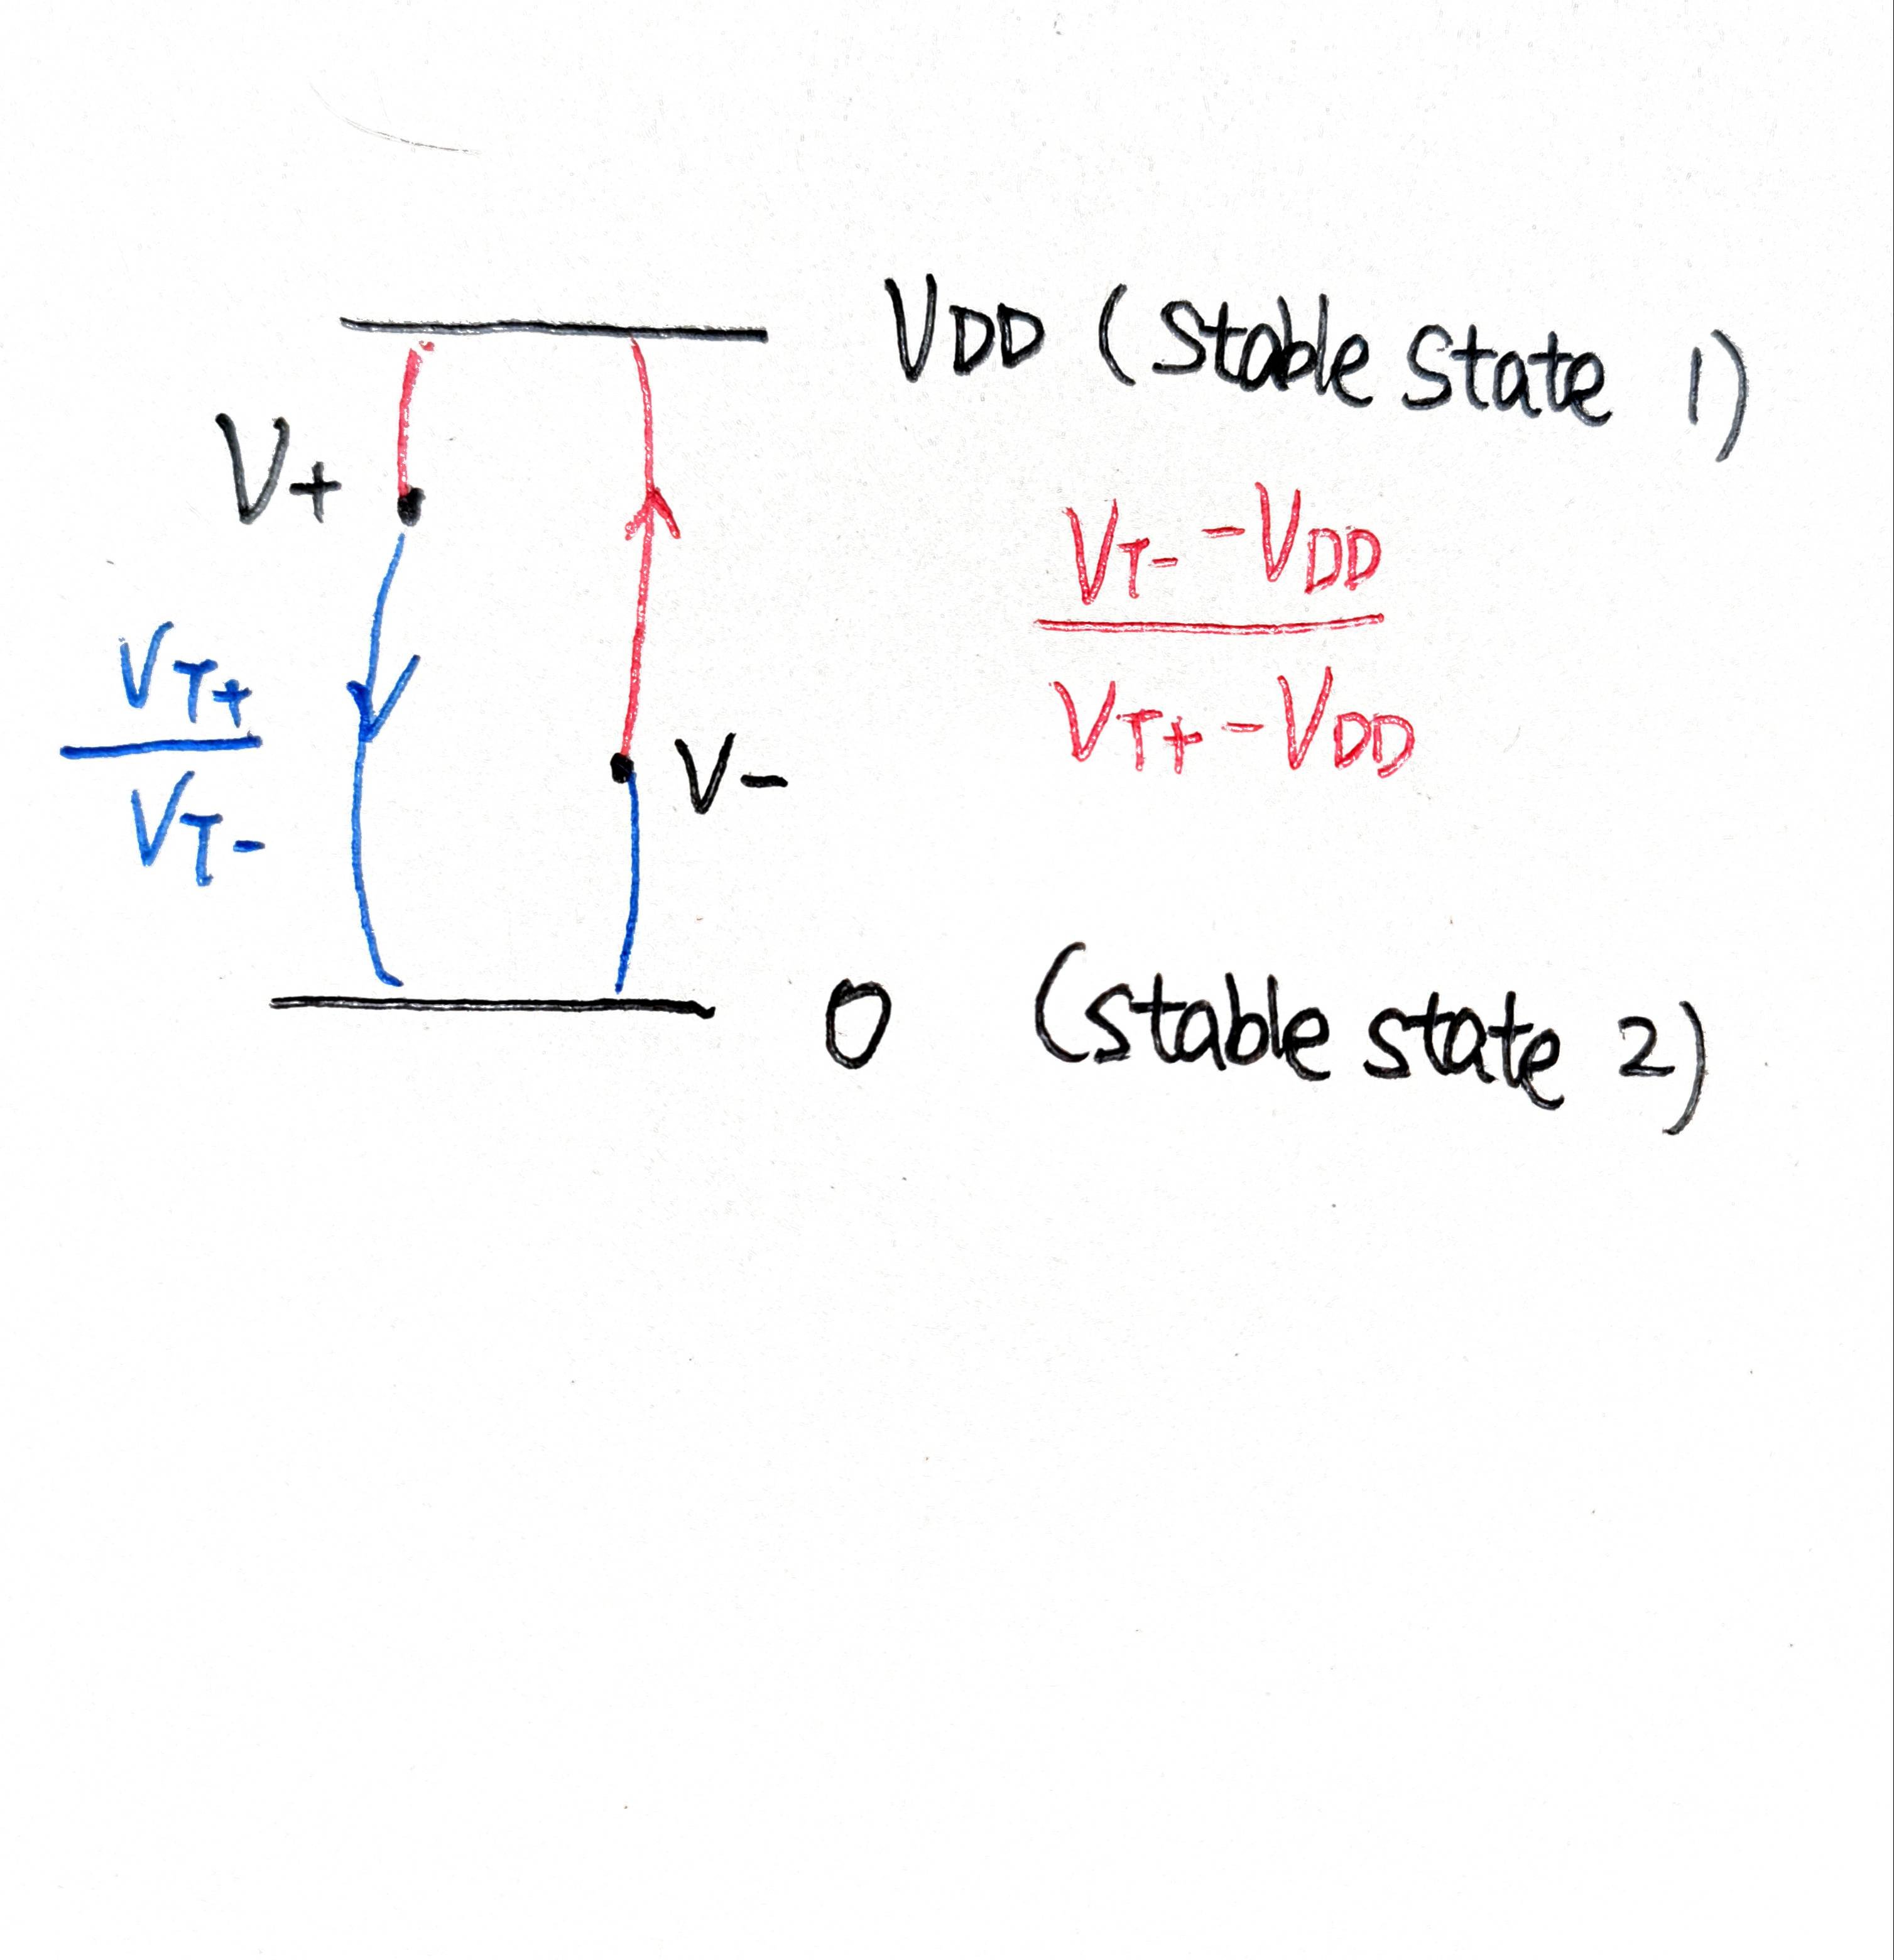 VDD (stable state 1)
V+
VT- - VDD
VT+ - VDD
VT+
VT-
V-
0 (stable state 2)